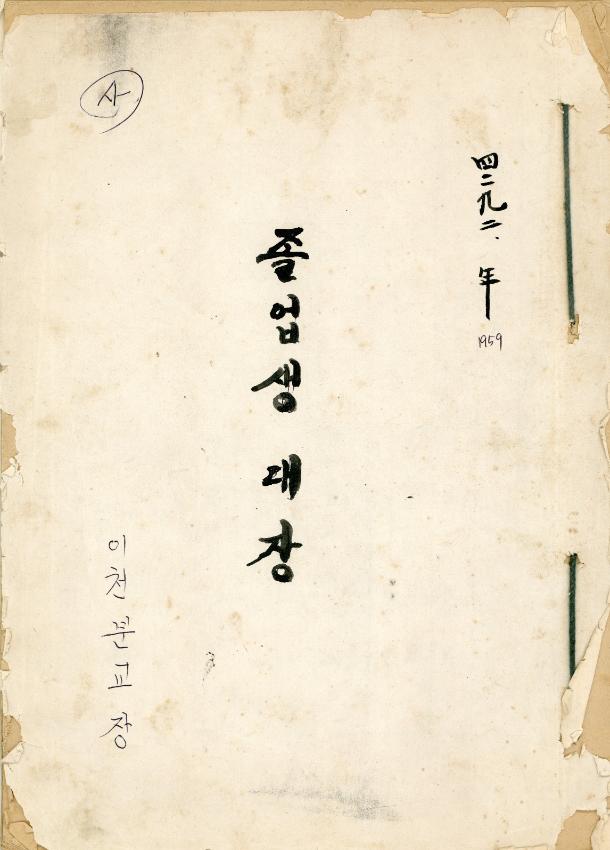 사
四二九二. 年
1959
졸업생 대장
이천분교장